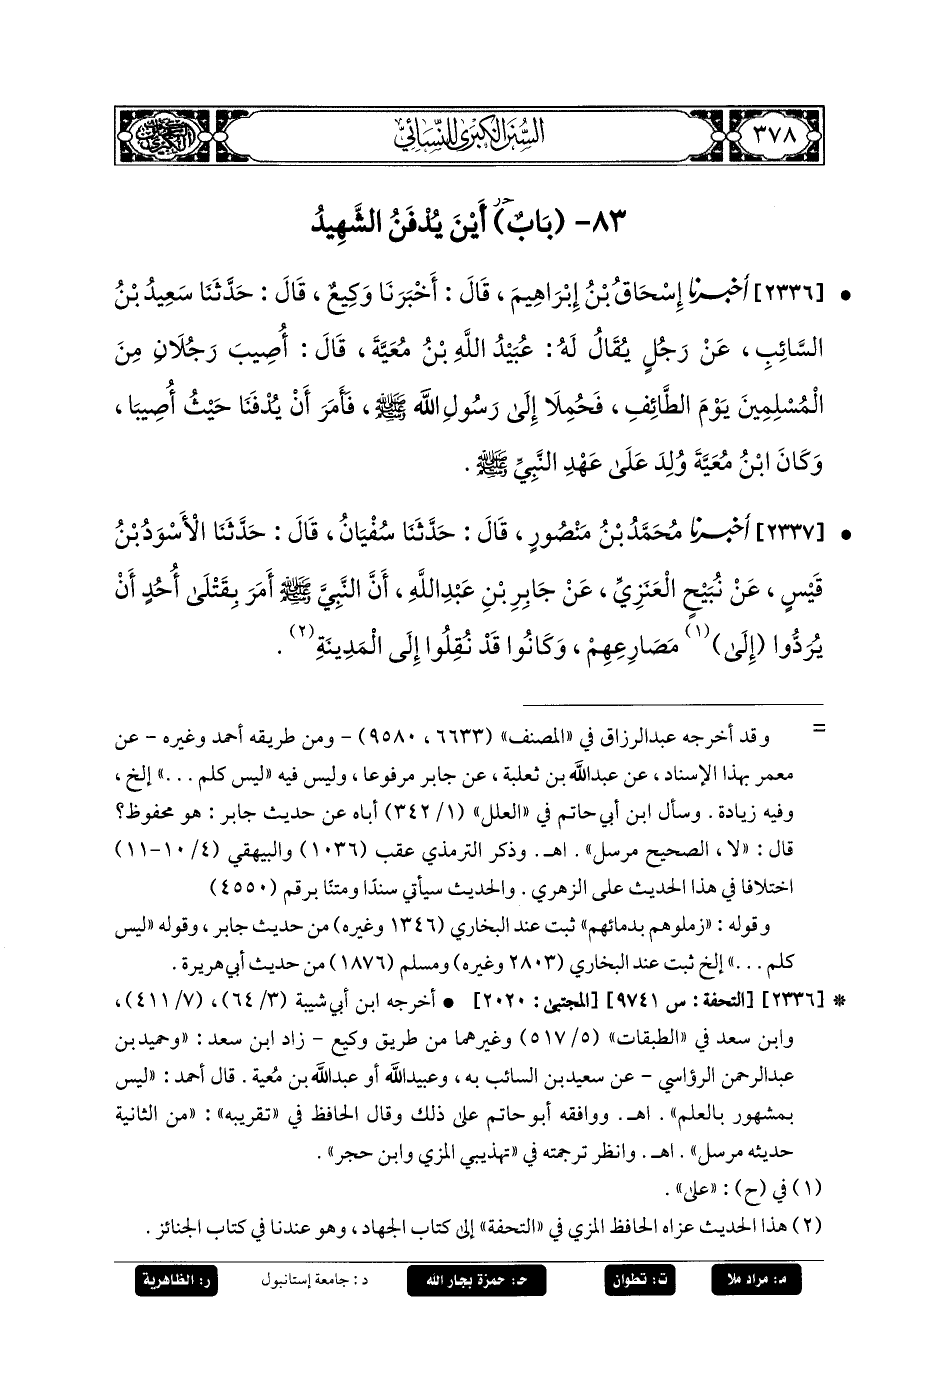 ٣٧٨
السُّنَنُ الكُبْرَى للنَّسَائِيِّ
٨٣- (بَابٌ) حر أَيْنَ يُدْفَنُ الشَّهِيدُ
• [٢٣٣٦] أَخْبَرَنَا إِسْحَاقُ بْنُ إِبْرَاهِيمَ، قَالَ: أَخْبَرَنَا وَكِيعٌ، قَالَ: حَدَّثَنَا سَعِيدُ بْنُ
السَّائِبِ، عَنْ رَجُلٍ يُقَالُ لَهُ: عُبَيْدُ اللَّهِ بْنُ مُعَيَّةَ، قَالَ: أُصِيبَ رَجُلَانِ مِنَ
الْمُسْلِمِينَ يَوْمَ الطَّائِفِ، فَحُمِلَا إِلَىٰ رَسُولِ اللَّه ﷺ، فَأَمَرَ أَنْ يُدْفَنَا حَيْثُ أُصِيبَا،
وَكَانَ ابْنُ مُعَيَّةَ وُلِدَ عَلَىٰ عَهْدِ النَّبِيِّ ﷺ.
• [٢٣٣٧] أَخْبَرَنَا مُحَمَّدُ بْنُ مَنْصُورٍ، قَالَ: حَدَّثَنَا سُفْيَانُ، قَالَ: حَدَّثَنَا الْأَسْوَدُ بْنُ
قَيْسٍ، عَنْ نُبَيْحٍ الْعَنَزِيِّ، عَنْ جَابِرِ بْنِ عَبْدِ اللَّهِ، أَنَّ النَّبِيَّ ﷺ أَمَرَ بِقَتْلَىٰ أُحُدٍ أَنْ
يُرَدُّوا (إِلَىٰ)(١) مَصَارِعِهِمْ، وَكَانُوا قَدْ نُقِلُوا إِلَى الْمَدِينَةِ(٢).
= وقد أخرجه عبدالرزاق في «المصنف» (٦٦٣٣، ٩٥٨٠) - ومن طريقه أحمد وغيره - عن
معمر بهذا الإسناد، عن عبدالله بن ثعلبة، عن جابر مرفوعا، وليس فيه «ليس كلم ...» إلخ،
وفيه زيادة. وسأل ابن أبي حاتم في «العلل» (١/ ٣٤٢) أباه عن حديث جابر: هو محفوظ؟
قال: «لا، الصحيح مرسل». اهـ. وذكر الترمذي عقب (١٠٣٦) والبيهقي (٤/ ١٠-١١)
اختلافا في هذا الحديث على الزهري. والحديث سيأتي سندًا ومتنًا برقم (٤٥٥٠)
وقوله: «زملوهم بدمائهم» ثبت عند البخاري (١٣٤٦ وغيره) من حديث جابر، وقوله «ليس
كلم ...» إلخ ثبت عند البخاري (٢٨٠٣ وغيره) ومسلم (١٨٧٦) من حديث أبي هريرة.
* [٢٣٣٦] [التحفة: س ٩٧٤١] [المجتبى: ٢٠٢٠] • أخرجه ابن أبي شيبة (٣/ ٦٤)، (٧/ ٤١١)،
وابن سعد في «الطبقات» (٥/ ٥١٧) وغيرهما من طريق وكيع - زاد ابن سعد: «وحميد بن
عبدالرحمن الرؤاسي - عن سعيد بن السائب به، وعبيدالله أو عبدالله بن مُعية. قال أحمد: «ليس
بمشهور بالعلم». اهـ. ووافقه أبو حاتم على ذلك وقال الحافظ في «تقريبه»: «من الثانية
حديثه مرسل». اهـ. وانظر ترجمته في «تهذيبي المزي وابن حجر».
(١) في (ح): «على».
(٢) هذا الحديث عزاه الحافظ المزي في «التحفة» إلى كتاب الجهاد، وهو عندنا في كتاب الجنائز.
م: مراد ملا ت: تطوان حـ: حمزة بجار الله د: جامعة إستانبول ر: الظاهرية